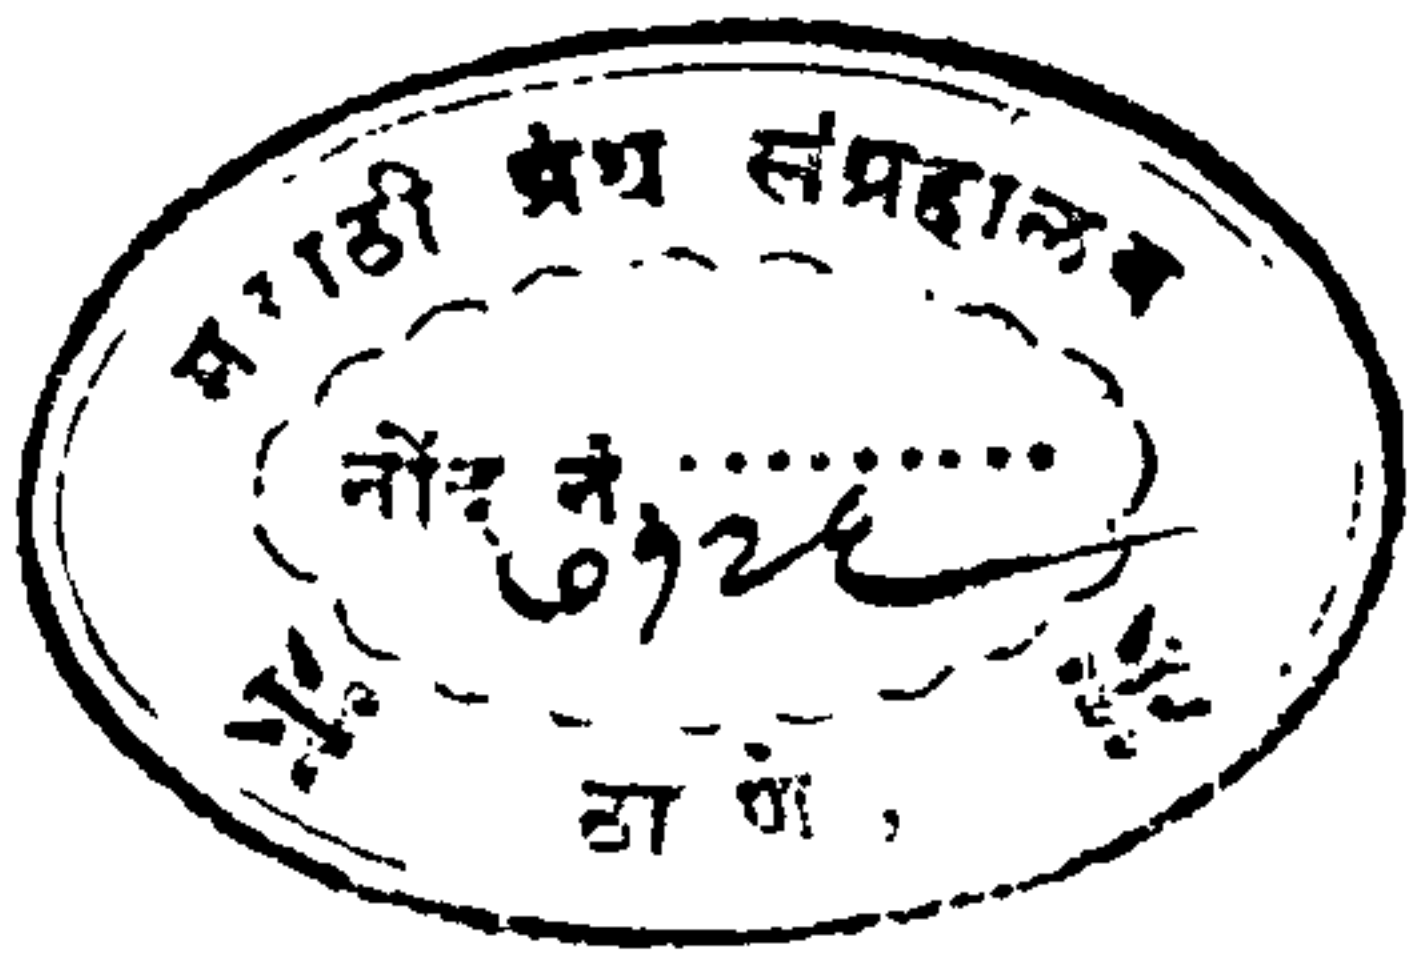 मराठी ग्रंथ संग्रहालय
नोंद नं. .........
७१२६
ठाणें,